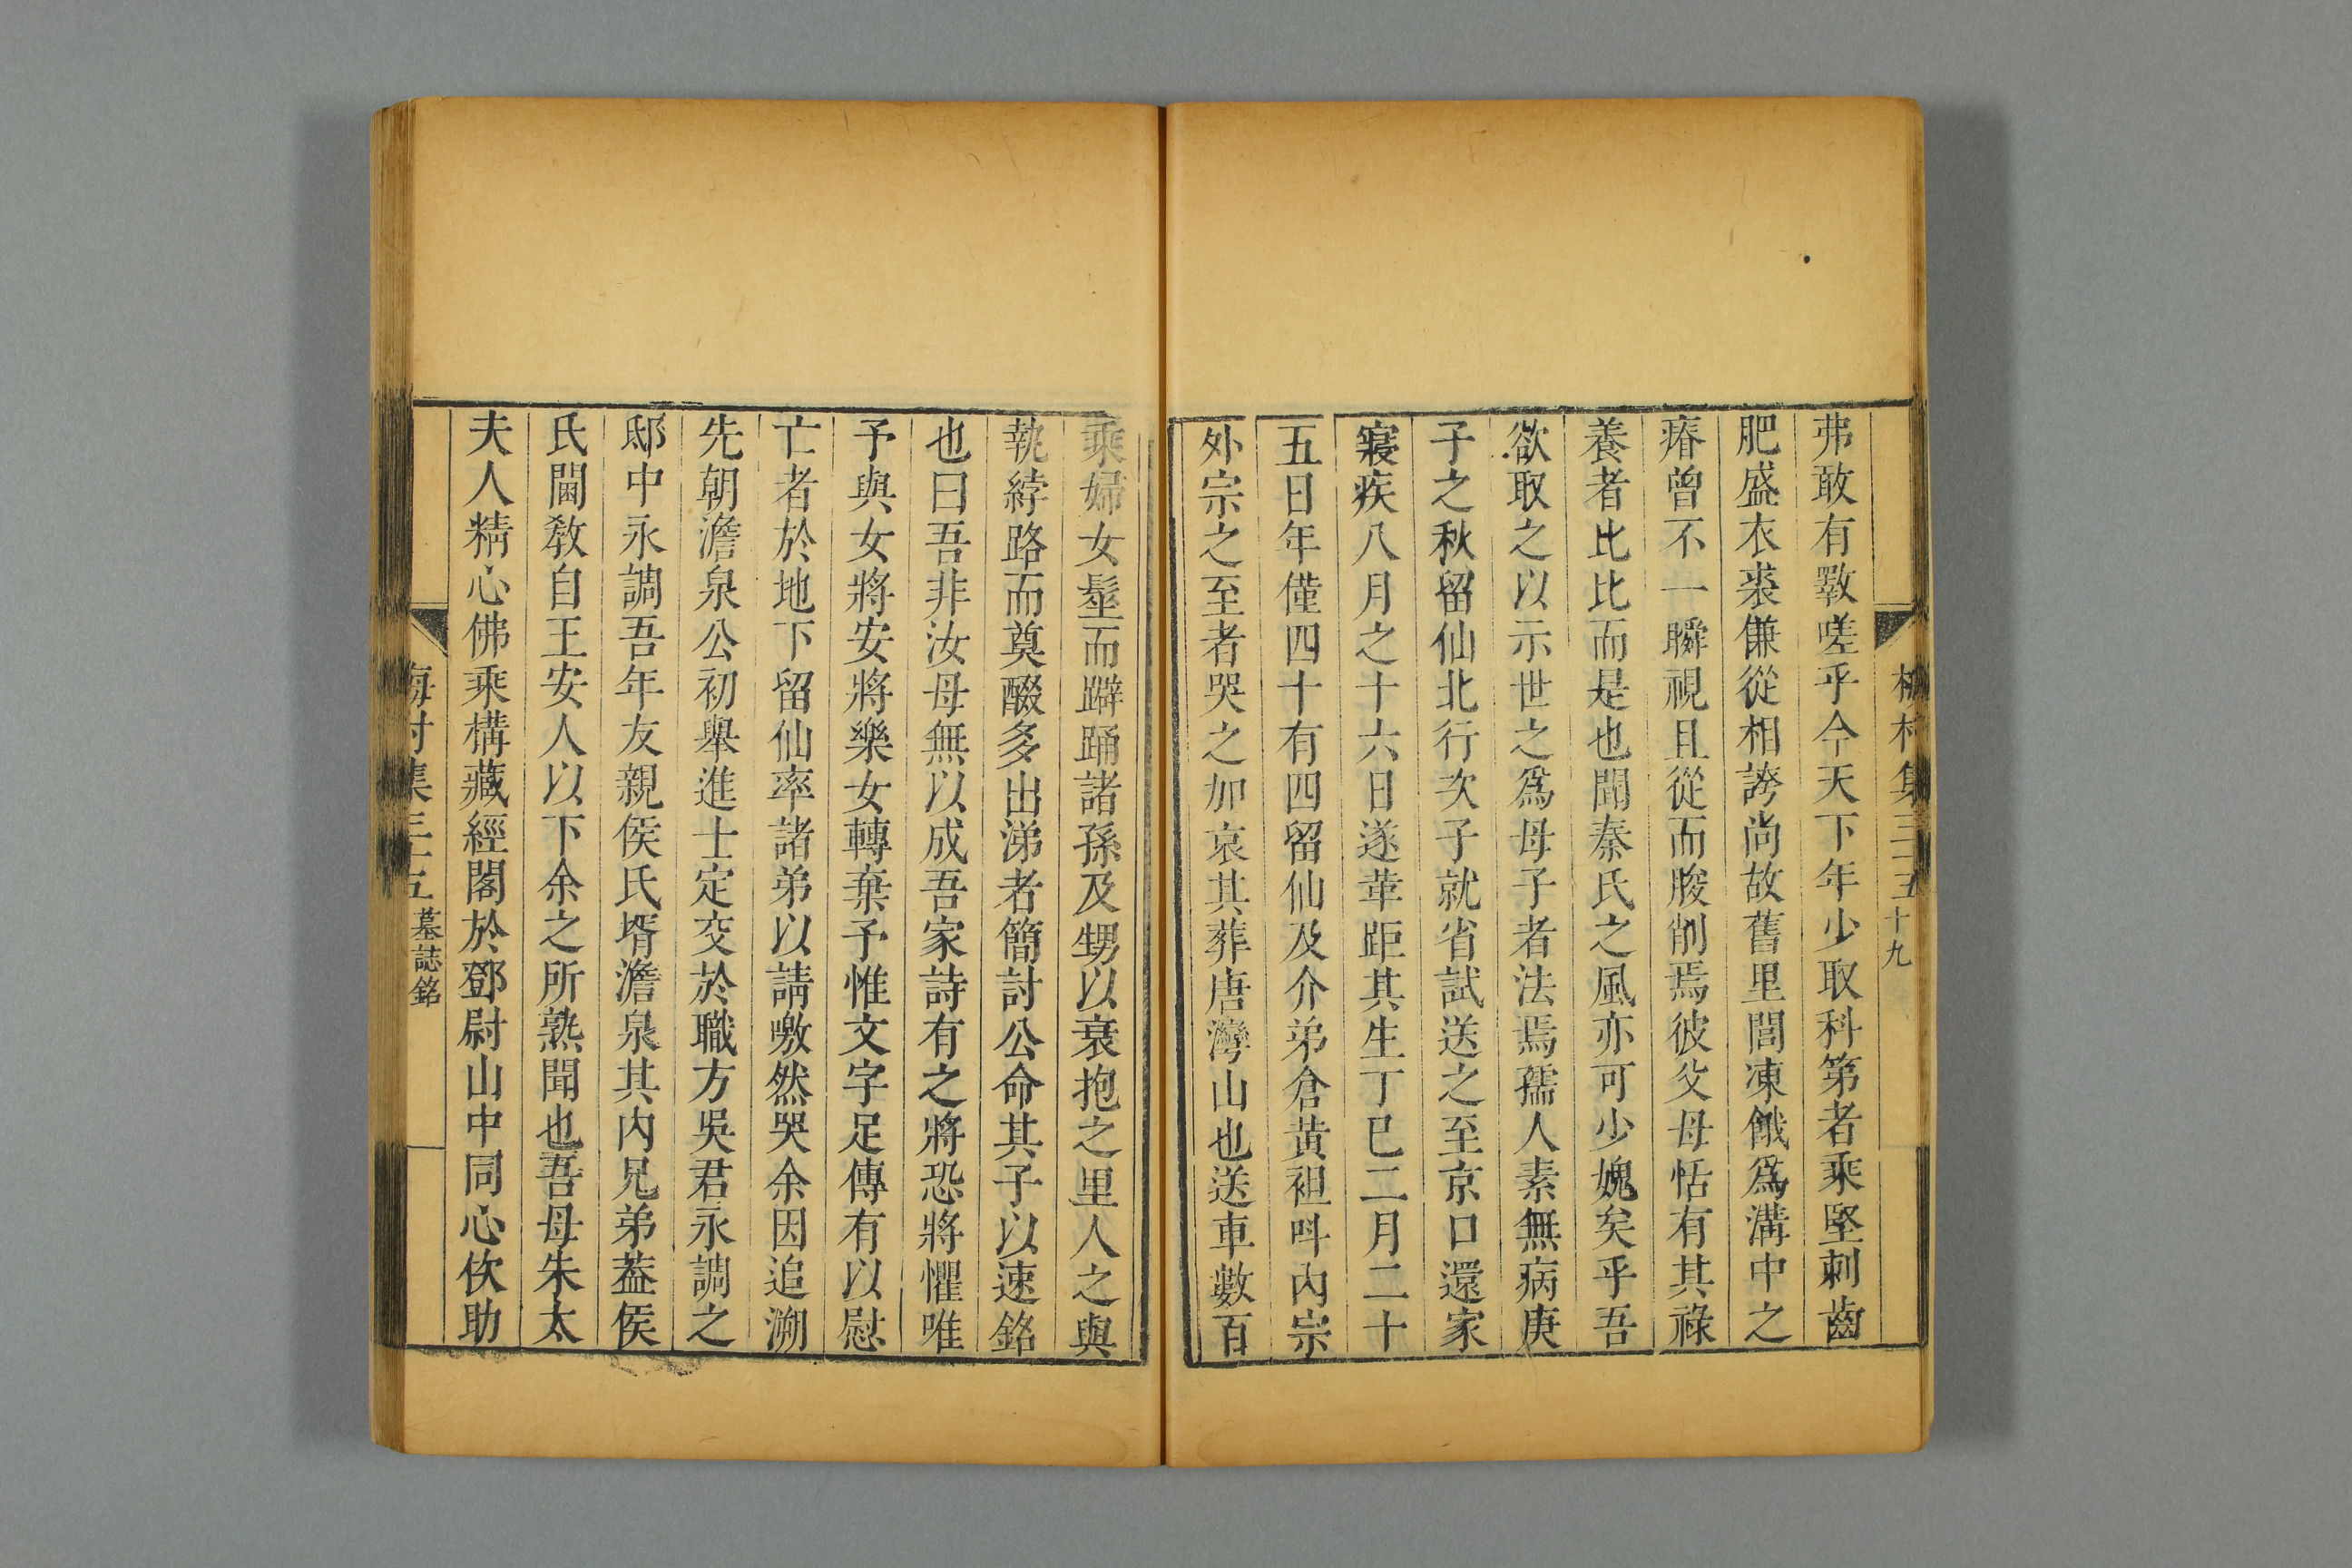 梅村集三十五 十九
弗敢有斁嗟乎今天下年少取科第者乘堅刺齒
肥盛衣裘傔從相誇尚故舊里閭凍餓爲溝中之
瘠曾不一瞬視且從而朘削焉彼父母恬有其祿
養者比比而是也聞秦氏之風亦可少媿矣乎吾
欲取之以示世之爲母子者法焉孺人素無病庚
子之秋留仙北行次子就省試送之至京口還家
寢疾八月之十六日遂革距其生丁巳二月二十
五日年僅四十有四留仙及介弟倉黃袒呌內宗
外宗之至者哭之加哀其葬唐灣山也送車數百
乘婦女髽而躃踊諸孫及甥以衰抱之里人之與
執綍路而奠醊多出涕者簡討公命其子以速銘
也曰吾非汝母無以成吾家詩有之將恐將懼唯
予與女將安將樂女轉棄予惟文字足傳有以慰
亡者於地下留仙率諸弟以請噭然哭余因追溯
先朝澹泉公初舉進士定交於職方吳君永調之
邸中永調吾年友親侯氏壻澹泉其內兄弟葢侯
氏閫敎自王安人以下余之所熟聞也吾母朱太
夫人精心佛乘構藏經閣於鄧尉山中同心佽助
梅村集三十五 墓誌銘